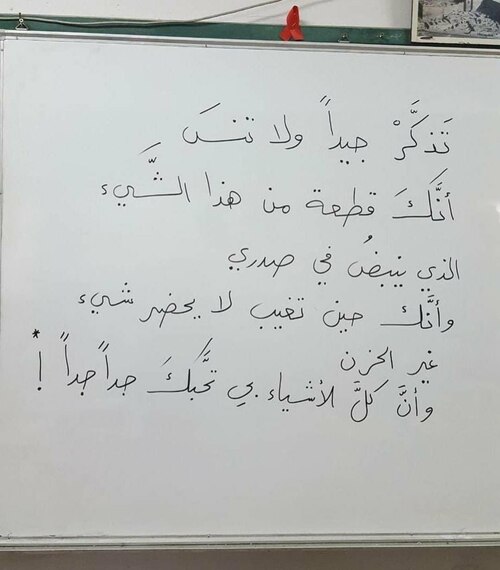 تَذكَّرْ جيداً ولا تنسَ
أنَّكَ قطعة من هذا الشَّيء
الذي ينبضُ في صدري
وأنَّك حين تغيب لا يحضر شيء
غير الحزن
وأنَّ كلَّ الأشياء بي تحُّبكَ جداً جداً ! *